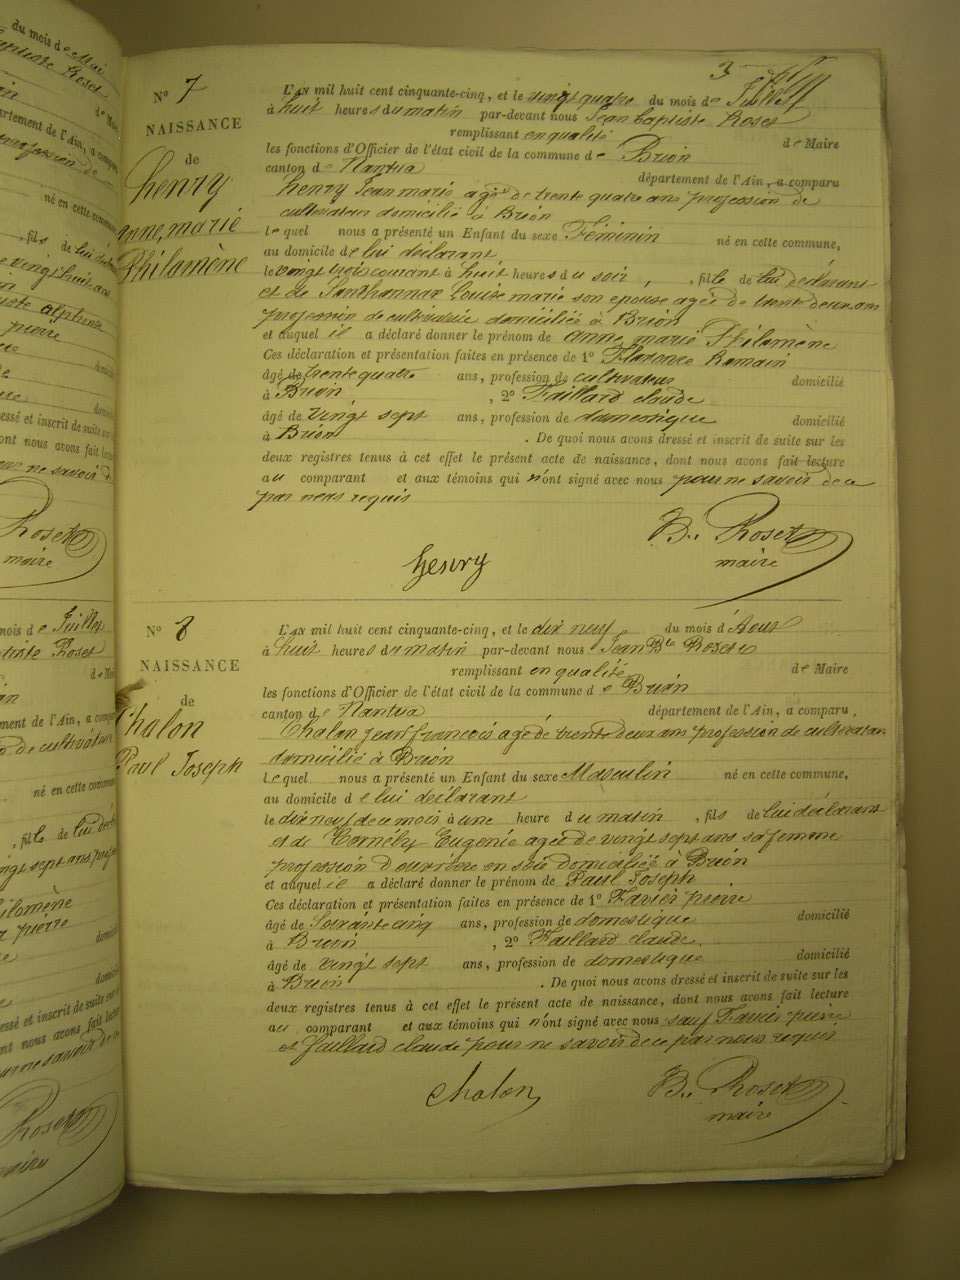 du mois de Mai
Baptiste Roset
de Maire
département de l'Ain, a comparu
profession de
né en cette commune,
, fils de lui
vingt huit ans
alphonse
pierre
domicilié
dressé et inscrit de suite sur
dont nous avons fait lecture
pour ne savoir d
Roset
maire
mois de Juillet
Baptiste Roset
de Maire
département de l'Ain, a comparu
de cultivateur
né en cette commune,
, fille de lui
vingt sept ans
Philomène
pierre
domicilié
dressé et inscrit de suite sur
dont nous avons fait lecture
pour ne savoir de
Roset
maire
3
N° 7
NAISSANCE
de
henry
anne, marie
Philomène
L'AN mil huit cent cinquante-cinq, et le vingt quatre du mois de Juillet
à huit heures du matin par-devant nous Jean baptiste Roset
remplissant en qualité de Maire
les fonctions d'Officier de l'état civil de la commune de Brion
canton de Nantua département de l'Ain, a comparu
henry Jean marie agé de trente quatre ans profession de
cultivateur domicilié à Brion
Lequel nous a présenté un Enfant du sexe Féminin né en cette commune,
au domicile de lui déclarant
le vingt trois courant à huit heures du soir , fille de lui déclarant
et de Louise marie son epouse agée de trente deux ans
profession de cultivatrice domiciliés à Brion
et auquel il a déclaré donner le prénom de anne marie Philomène
Ces déclaration et présentation faites en présence de 1° Romain
âgé de trente quatre ans, profession de cultivateur domicilié
à Brion , 2° Faillard claude
âgé de vingt sept ans, profession de domestique domicilié
à Brion . De quoi nous avons dressé et inscrit de suite sur les
deux registres tenus à cet effet le présent acte de naissance, dont nous avons fait lecture
au comparant et aux témoins qui n'ont signé avec nous pour ne savoir de ce
par nous requis
henry
B. Roset
maire
N° 8
NAISSANCE
de
Chalon
Paul Joseph
L'AN mil huit cent cinquante-cinq, et le dix neuf du mois d'Aout
à huit heures du matin par-devant nous Jean Bte Roset
remplissant en qualité de Maire
les fonctions d'Officier de l'état civil de la commune de Brion
canton de Nantua département de l'Ain, a comparu
Chalon jean francois agé de trente deux ans profession de cultivateur
domicilié à Brion
Lequel nous a présenté un Enfant du sexe Masculin né en cette commune,
au domicile de lui déclarant
le dix neuf de ce mois à une heure du matin , fils de lui déclarant
et de Eugenie agée de vingt sept ans sa femme
profession d'ouvrière en soie domiciliée à Brion
et auquel il a déclaré donner le prénom de Paul Joseph
Ces déclaration et présentation faites en présence de 1° Favier pierre
âgé de Soixante cinq ans, profession de domestique domicilié
à Brion , 2° Faillard claude
âgé de vingt sept ans, profession de domestique domicilié
à Brion . De quoi nous avons dressé et inscrit de suite sur les
deux registres tenus à cet effet le présent acte de naissance, dont nous avons fait lecture
au comparant et aux témoins qui n'ont signé avec nous sauf Favier pierre
et Faillard claude pour ne savoir de ce par nous requis
chalon
B. Roset
maire